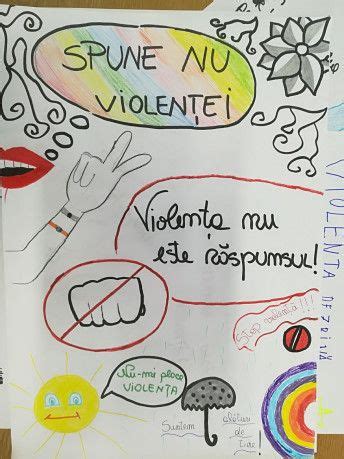 SPUNE NU
VIOLENȚEI
Violența nu
este răspunsul!
VIOLENTA
Stop violența!!!
Nu-mi place
VIOLENȚA
Suntem alături
de
tine!